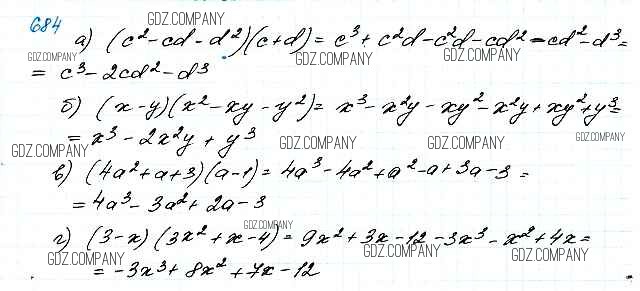 684
GDZ.COMPANY
а) (c² - cd - d²)(c + d) = c³ + c²d - c²d - cd² - cd² - d³ =
GDZ.COMPANY GDZ.COMPANY GDZ.COMPANY
= c³ - 2cd² - d³
б) (x - y)(x² - xy - y²) = x³ - x²y - xy² - x²y + xy² + y³ =
= x³ - 2x²y + y³
GDZ.COMPANY GDZ.COMPANY GDZ.COMPANY
в) (4a² + a + 3)(a - 1) = 4a³ - 4a² + a² - a + 3a - 3 =
= 4a³ - 3a² + 2a - 3
GDZ.COMPANY
г) (3 - x)(3x² + x - 4) = 9x² + 3x - 12 - 3x³ - x² + 4x =
GDZ.COMPANY GDZ.COMPANY GDZ.COMPANY
= -3x³ + 8x² + 7x - 12